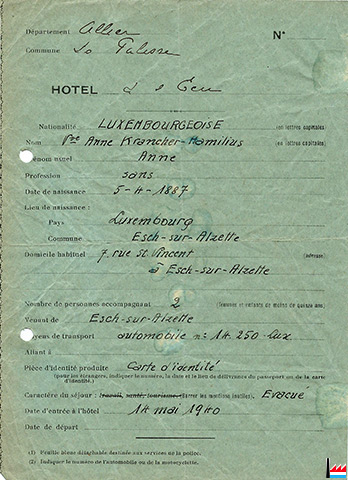 Département Allier
Nº
Commune La Palisse
HOTEL de l'Ecu
Nationalité LUXEMBOURGEOISE (en lettres capitales)
Nom Vve Anne Krancher-Hamilius (en lettres capitales)
Prénom usuel Anne
Profession sans
Date de naissance 5-4-1887
Lieu de naissance :
Pays Luxembourg
Commune Esch-sur-Alzette
Domicile habituel 7, rue St Vincent (adresse)
à Esch-sur-Alzette
Nombre de personnes accompagnant 2 (femmes et enfants de moins de quinze ans)
Venant de Esch-sur-Alzette
Moyens de transport automobile nº 14 250 Lux.
Allant à
Pièce d'identité produite Carte d'identité
(pour les étrangers, indiquer le numéro, la date et le lieu de délivrance du passeport ou de la carte
d'identité.)
Caractère du séjour : travail, santé, tourisme (barrer les mentions inutiles). Evacué
Date d'entrée à l'hôtel 14 mai 1940
Date de départ
(1) Feuille blanc détachable destinée aux services de la police.
(2) Indiquer le numéro de l'automobile ou de la motocyclette.